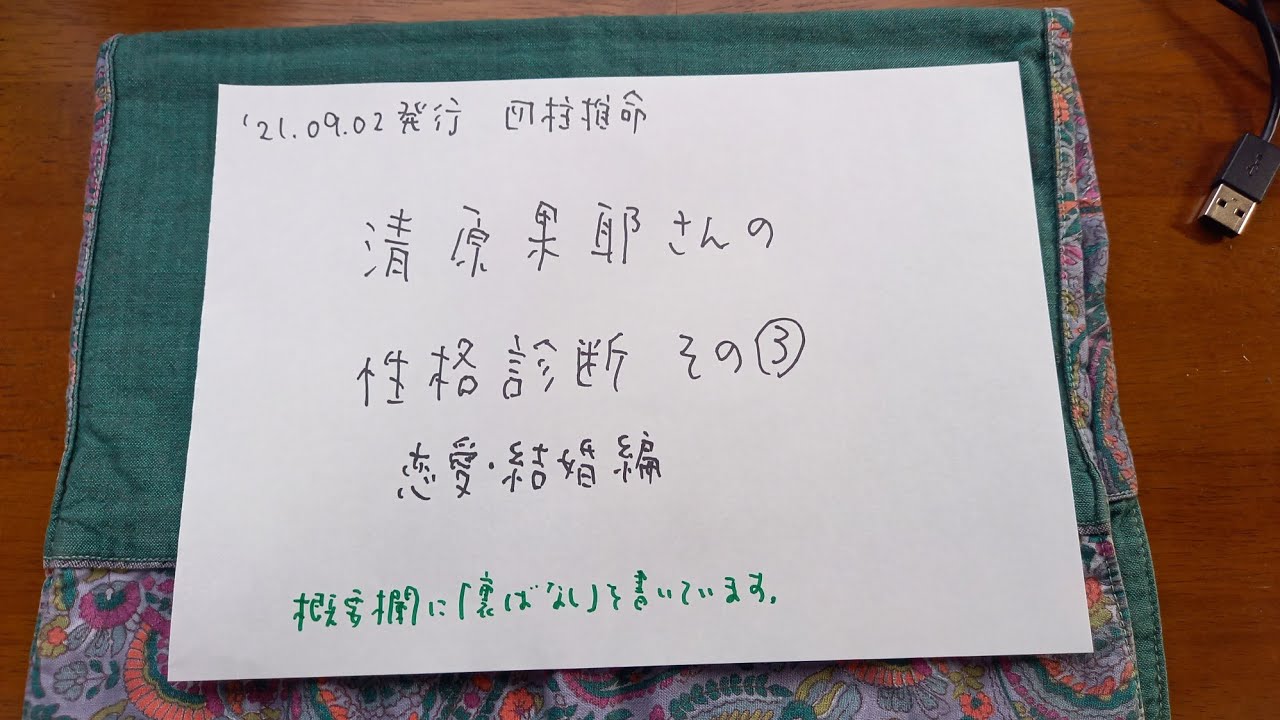 '21.09.02発行 四柱推命
清原果耶さんの
性格診断 その③
恋愛・結婚編
概要欄に「裏ばなし」を書いています。